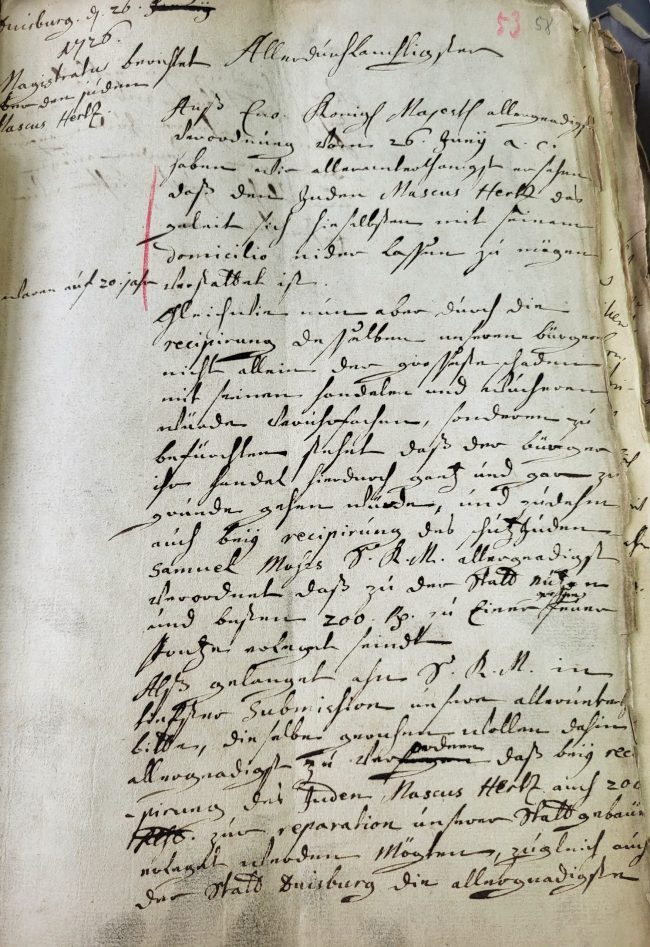 Duisburg. d. 26. Junÿ
1726.
Magistratus berichtet
über den juden
Mascus Hertz.
53 58
Allerdurchlauchtigster
Auß Ew. Königl Majestt allergnädigst
Verordnung vom 26. Junÿ a. c.
haben wir allerunterthänigst ersehen
daß dem Juden Mascus Hertz das
geleit sich hieselbsten mit seinem
domicilio nider lassen zu mögen
waren auf 20. jahr
verstattet ist.
Gleichwie nun aber durch die
recipirung desselben unseren bürgern
nicht allein der grosseste schaden
mit seinen handelen und wucheren
würde veruhrsachen, sonderen zu
befürchten stehet daß der bürger
ihr handel hierdurch gantz und gar zu
grunde gehen würde, und zudehm
auch beÿ recipirung des schutzJuden
Samuel Moÿses S. K. M. allergnädigst
verordnet daß zu der Statt nutzen
und besten 200 Rp. zu Einer feuer
sprütze erleget seindt
Alß gelanget ahn S. K. M. in
tiefster Submission unsere allerunter
bitte, dieselbe geruhen wollen dahin
allergnädigst zu verordenen daß beÿ reci
-pirung des Juden Mascus Hertz auch 200
zur reparation unserer Stattgebäu
erleget werden mögten, zugleich auch
der Statt Duisburg die allergnädigste